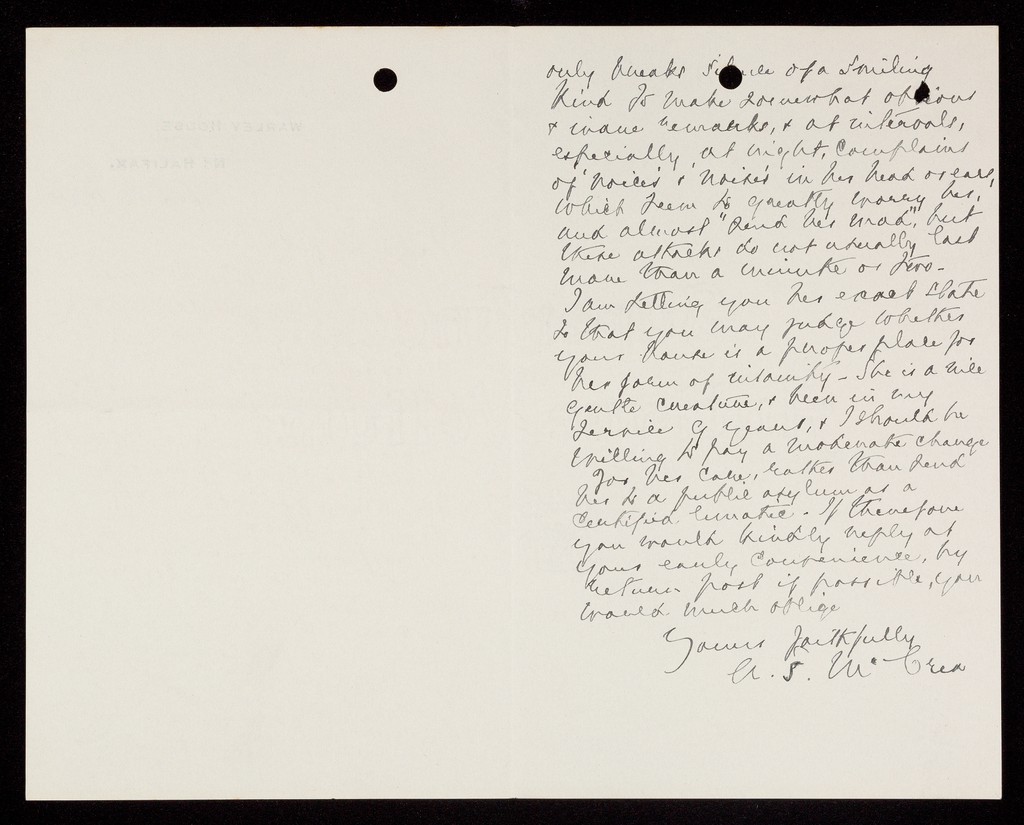 only breaks silence of a smiling
kind to make somewhat obvious
& inane remarks, & at intervals,
especially at night, complains
of 'voices' & 'noises' in her head or ears,
which seem to greatly worry her,
and almost "send her mad", but
these attacks do not usually last
more than a minute or two -
I am telling you her exact state
so that you may judge whether
your house is a proper place for
her form of insanity - She is a nice
gentle creature, & been in my
service 9 years, & I should be
willing to pay a moderate charge
for her care, rather than send
her to a public asylum as a
certified lunatic. If therefore
you would kindly reply at
your early convenience, by
return post if possible, you
would much oblige
Yours faithfully
A. S. McCrea
WARLEY HOUSE
Nr HALIFAX.